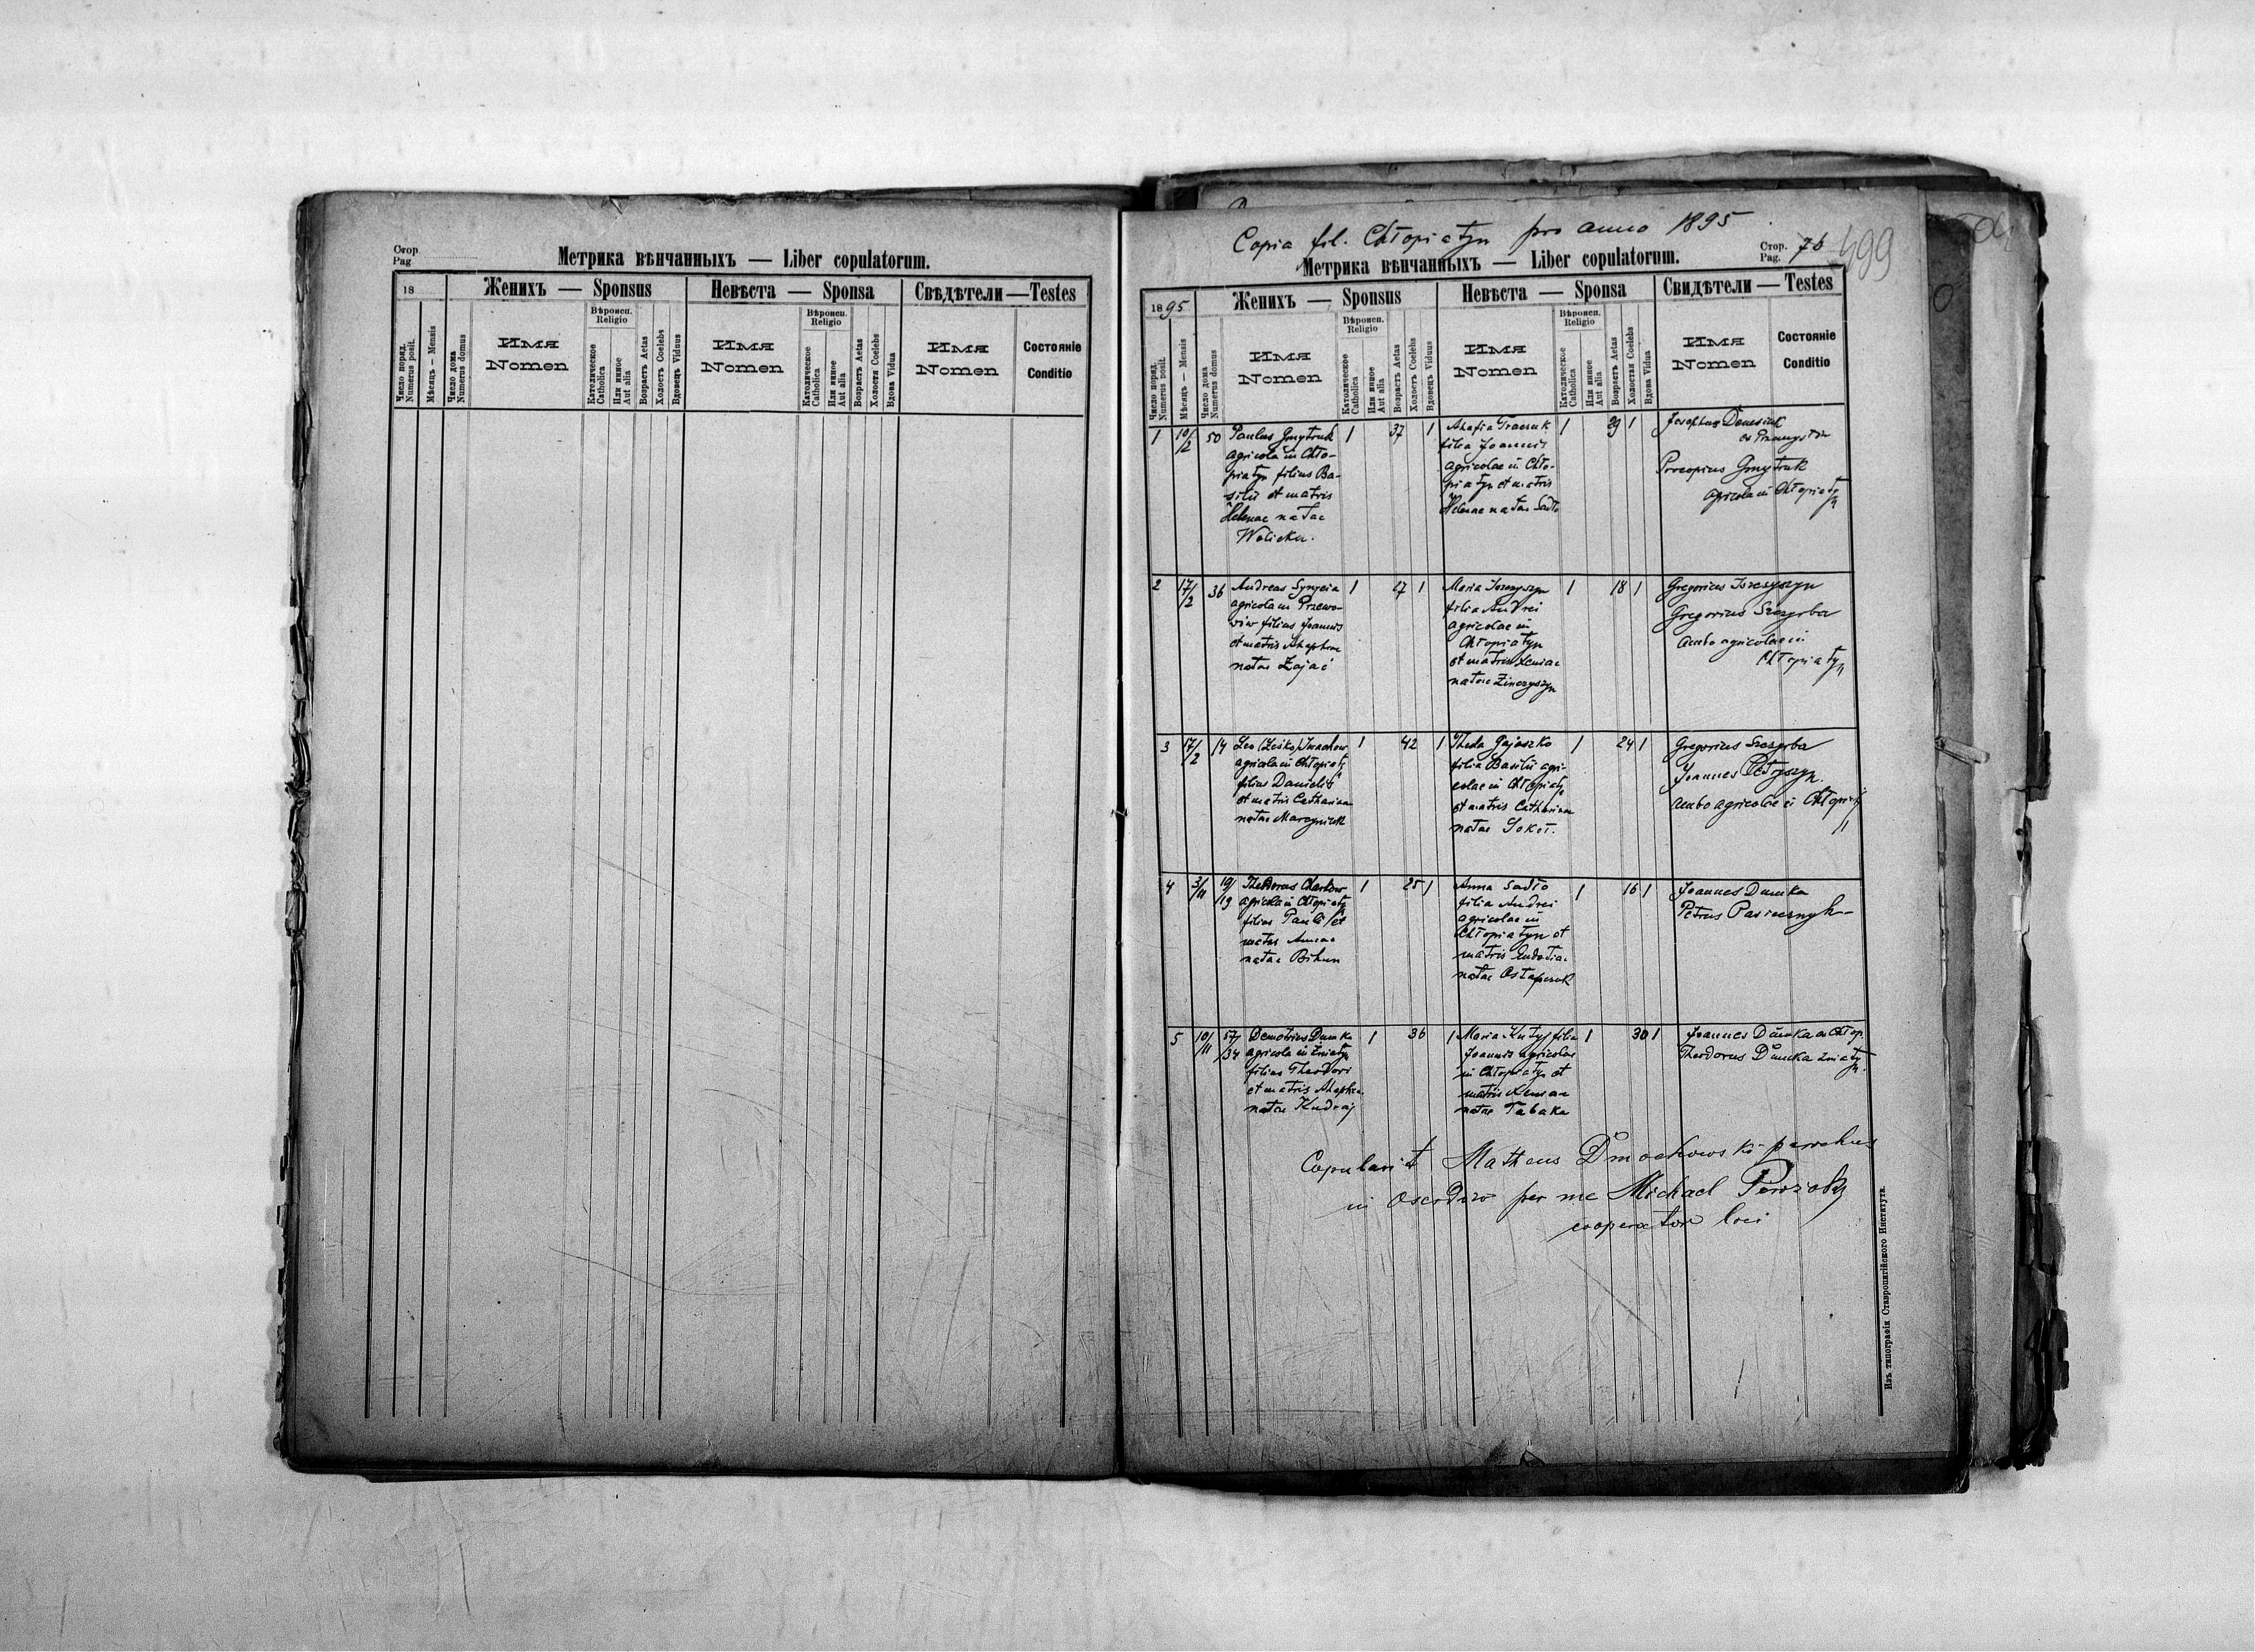 Стор.
Pag.
Метрика вѣнчанныхъ — Liber copulatorum.
18
Женихъ — Sponsus
Невѣста — Sponsa
Свѣдѣтели — Testes
Число поряд.
Numerus posit.
Мѣсяцъ — Mensis
Число дома
Numerus domus
Имя
Nomen
Вѣроисп.
Religio
Католическое
Catholica
Или инное
Aut alia
Возрастъ Aetas
Холостъ Coelebs
Вдовецъ Viduus
Имя
Nomen
Вѣроисп.
Religio
Католическое
Catholica
Или инное
Aut alia
Возрастъ Aetas
Холостая Coelebs
Вдова Vidua
Имя
Nomen
Состояніе
Conditio
Copia fil. Chłopiatyn pro anno 1895
Метрика вѣнчанныхъ — Liber copulatorum.
Стор.
Pag. 76
499
1895
Женихъ — Sponsus
Невѣста — Sponsa
Свидѣтели — Testes
Число поряд.
Numerus posit.
Мѣсяцъ — Mensis
Число дома
Numerus domus
Имя
Nomen
Вѣроисп.
Religio
Католическое
Catholica
Или инное
Aut alia
Возрастъ Aetas
Холостъ Coelebs
Вдовецъ Viduus
Имя
Nomen
Вѣроисп.
Religio
Католическое
Catholica
Или инное
Aut alia
Возрастъ Aetas
Холостая Coelebs
Вдова Vidua
Имя
Nomen
Состояніе
Conditio
1 10/2 50
Paulus Gmytruk
agricola in Chło-
piatyn filius Ba-
silii et matris
Helenae natae
Wolicka.
1 37 1
Ahafia Tracruk
filia Joannis
agricolae in Chło-
piatyn et matris
Helenae natae Sadło
1 39 1
Josephus
Procopius Gmytruk
agricola in Chłopiatyn
2 17/2 36
Andreas
agricola in Przewo-
dów filius Joannis
et matris
natae Zając
1 27 1
Maria
filia Andrei
agricolae in
Chłopiatyn
et matris Xeniae
natae Zinczyszyn
1 18 1
Gregorius
Gregorius Szczyrba
ambo agricolae in
Chłopiatyn
3 17/2 14
Leo (Leśko) Iwachow
agricola in Chłopiaty
filius Danielis
et matris Catharinae
natae Marcyniuk
1 42 1
Thecla Gajoszko
filia Basilii agri-
colae in Chłopiaty
et matris Catharinae
natae Sokoł.
1 24 1
Gregorius Szczyrba
Joannes Petryszyn.
ambo agricolae in Chłopiaty
4 3/11 19/19
Theodorus
agricola in Chłopiaty
filius Pauli et
matris Annae
natae Bihun
1 25 1
Anna Sadło
filia Andrei
agricolae in
Chłopiatyn et
matris
natae Ostapczuk
1 16 1
Joannes Dumka
Petrus Pasicznyk
5 10/11 57/34
Demetrius Dumka
agricola in Żniaty
filius Theodori
et matris
natae Kudraj
1 36 1
Maria Kutyj filia
Joannis agricolae
in Chłopiatyn et
matris Xeniae
natae Tabaka
1 30 1
Joannes Dumka ex Chłop.
Theodorus Dumka Żniatyn.
Copulavit Matheus Dmochowski parochus
in Oserdów per me Michael
cooperator loci
Изъ типографіи Ставропигійского Института.